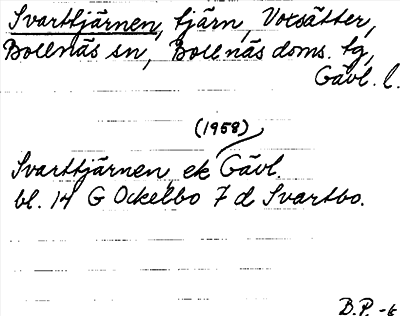 Svarttjärnen, tjärn, Voxsätter,
Bollnäs sn, Bollnäs doms. tg,
Gävl. l.
(1958)
Svarttjärnen, ek Gävl.
bl. 14 G Ockelbo 7 d Svartbo.
B.P. -6